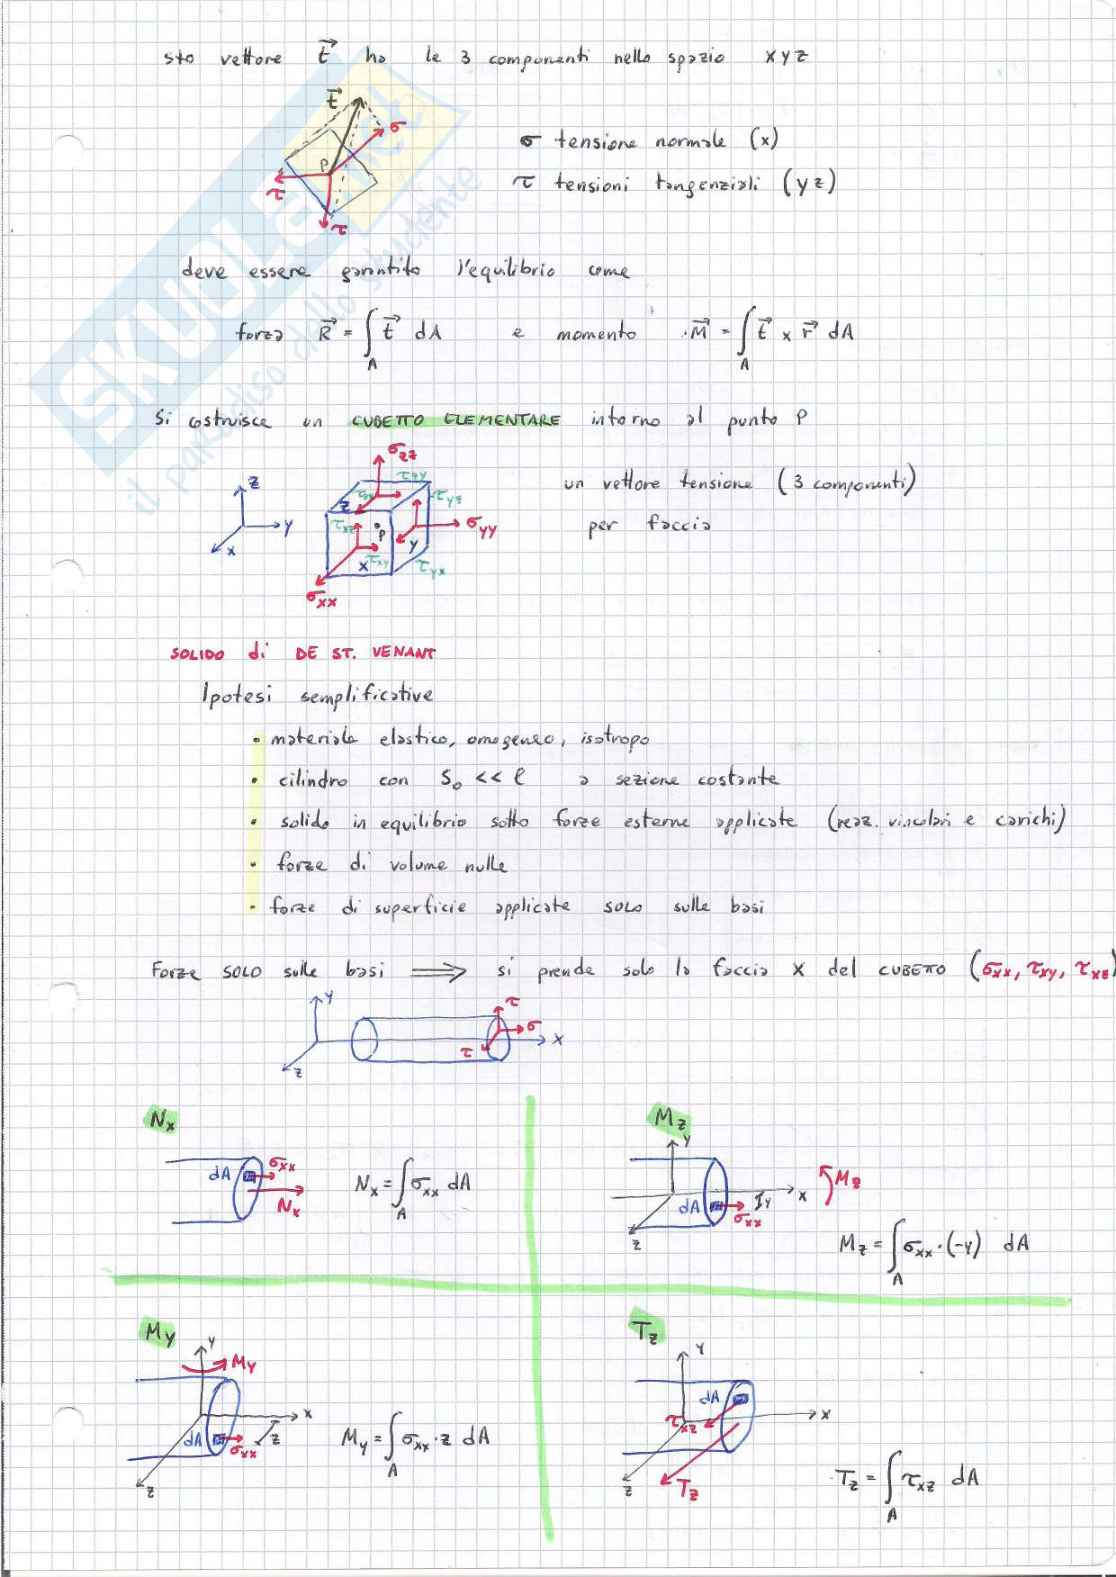 sto vettore t⃗ ha le 3 componenti nello spazio x y z
t⃗
σ
P
τ
τ
σ tensione normale (x)
τ tensioni tangenziali (y z)
deve essere garantito l'equilibrio come
forza R⃗ = ∫_A t⃗ dA e momento M⃗ = ∫_A t⃗ x r⃗ dA
Si costruisce un CUBETTO ELEMENTARE intorno al punto P
z
y
x
σzz
τzy
τzx
z
τyz
τxz
P
σyy
y
x
τxy
τyx
σxx
un vettore tensione (3 componenti)
per faccia
SOLIDO di DE ST. VENANT
Ipotesi semplificative
• materiale elastico, omogeneo, isotropo
• cilindro con S₀ << l a sezione costante
• solido in equilibrio sotto forze esterne applicate (reaz. vincolari e carichi)
• forze di volume nulle
• forze di superficie applicate SOLO sulle basi
Forze SOLO sulle basi ⟹ si prende solo la faccia X del CUBETTO (σxx, τxy, τxz)
y
τ
σ
x
τ
z
Nx
dA
σxx
Nx
Nx = ∫_A σxx dA
Mz
y
x
Mz
dA
σxx
y
z
Mz = ∫_A σxx·(-y) dA
My
y
My
x
dA
σxx
z
z
My = ∫_A σxx·z dA
Tz
y
dA
x
τxz
z
Tz
Tz = ∫_A τxz dA
SKUOLA.net
il paradiso dello studente